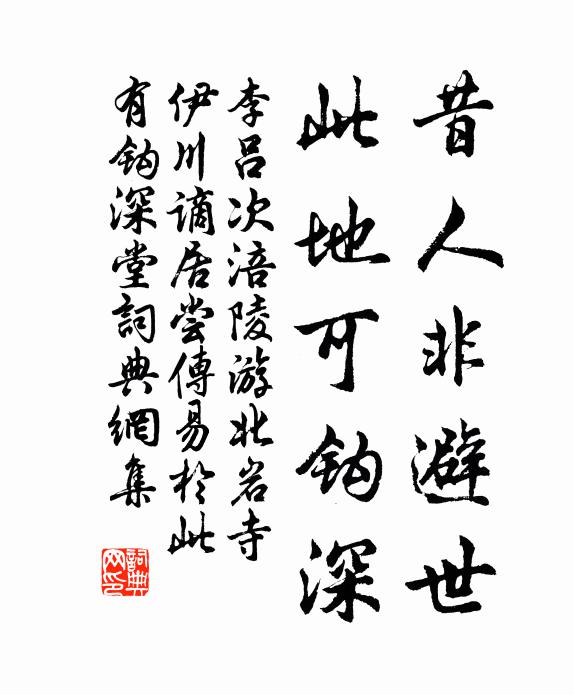 昔人非避世
此地可钩深
李吕次涪陵游北岩寺
伊川谪居尝傳易於此
有钩深堂詞典網集
詞典网印